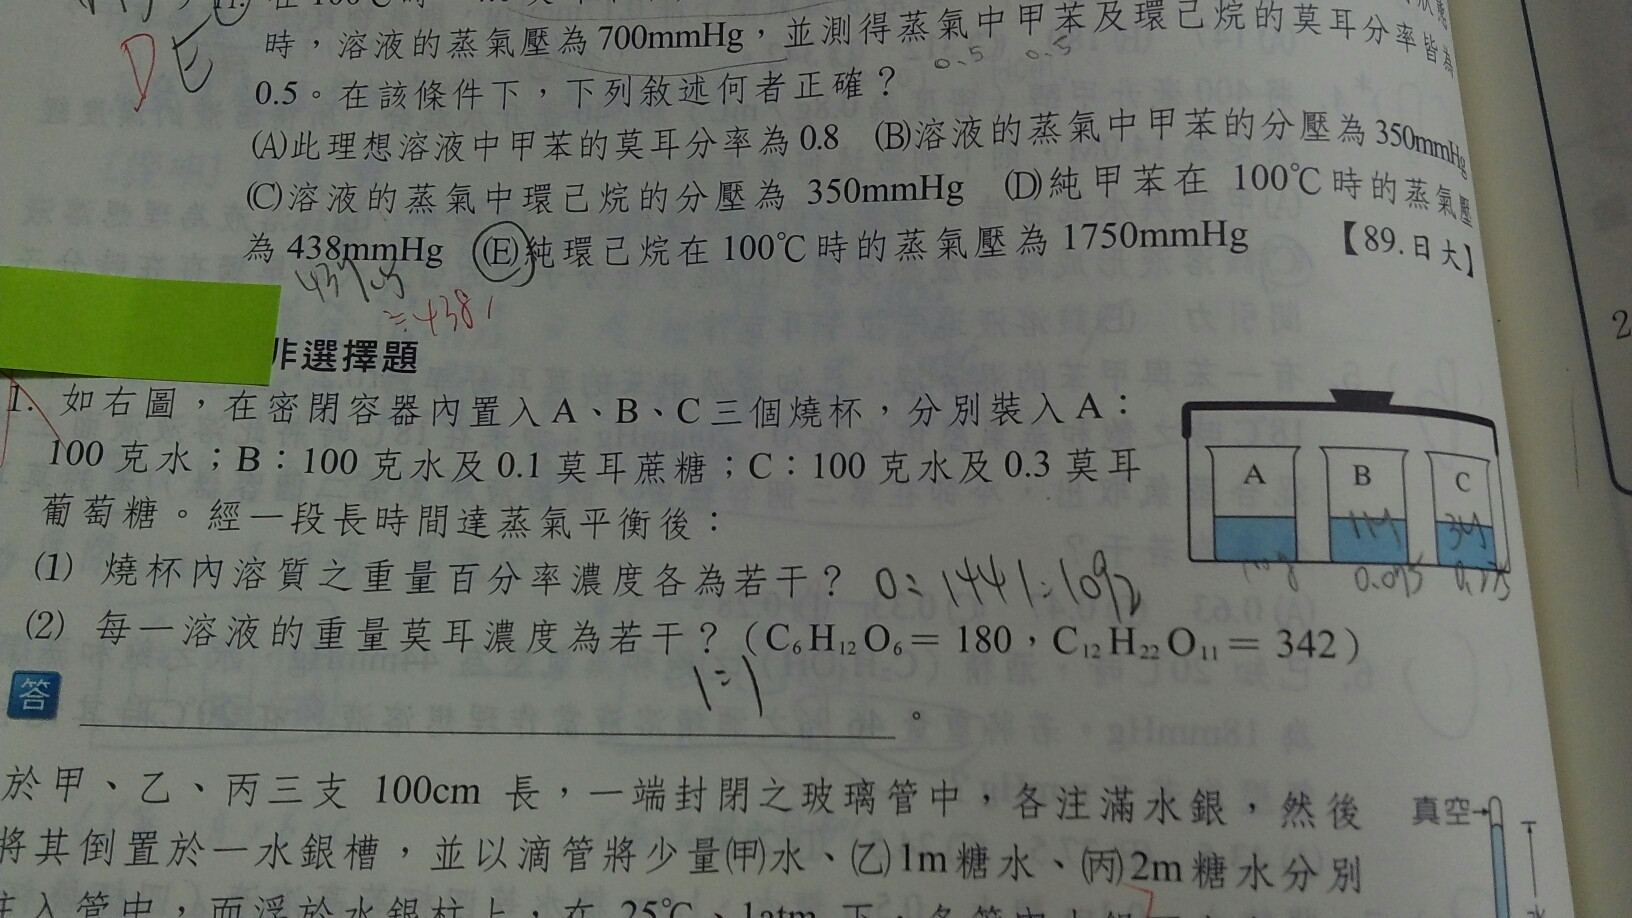 時，溶液的蒸氣壓為700mmHg，並測得蒸氣中甲苯及環己烷的莫耳分率皆為
0.5 0.5
0.5。在該條件下，下列敘述何者正確？
DE
(A)此理想溶液中甲苯的莫耳分率為0.8 (B)溶液的蒸氣中甲苯的分壓為350mmHg
(C)溶液的蒸氣中環己烷的分壓為 350mmHg (D)純甲苯在 100℃時的蒸氣壓
為438mmHg (E)純環己烷在100℃時的蒸氣壓為1750mmHg 【89.日大】
437.5
≒438
非選擇題
1. 如右圖，在密閉容器內置入A、B、C三個燒杯，分別裝入A：
100克水；B：100克水及0.1莫耳蔗糖；C：100克水及0.3莫耳
葡萄糖。經一段長時間達蒸氣平衡後：
A B C
(1) 燒杯內溶質之重量百分率濃度各為若干？
(2) 每一溶液的重量莫耳濃度為若干？(C₆H₁₂O₆＝180，C₁₂H₂₂O₁₁＝342)
答 。
於甲、乙、丙三支 100cm 長，一端封閉之玻璃管中，各注滿水銀，然後
真空
將其倒置於一水銀槽，並以滴管將少量(甲)水、(乙)1m糖水、(丙)2m糖水分別
注入管中，而浮於水銀柱上，在 25℃、1atm 下，
2